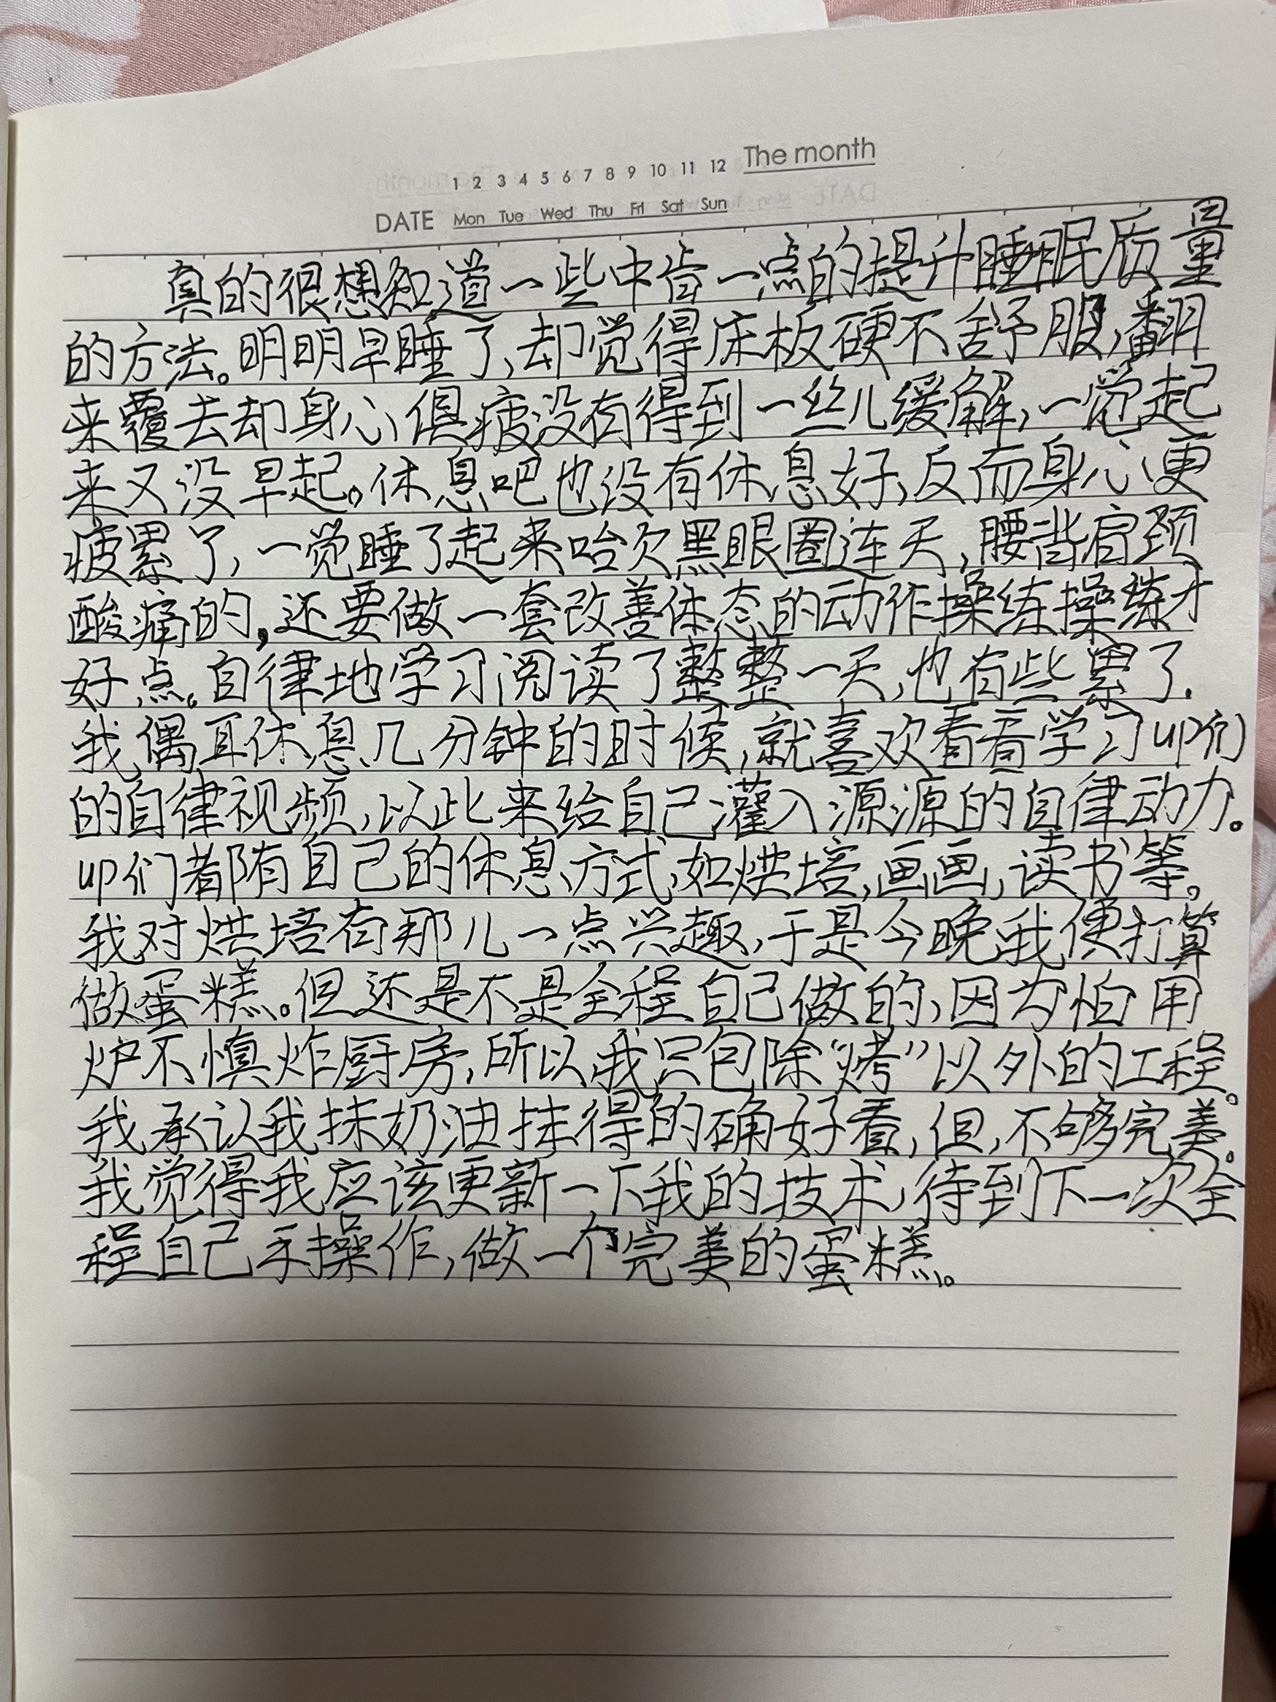 The month
1 2 3 4 5 6 7 8 9 10 11 12
DATE Mon Tue Wed Thu Fri Sat Sun
真的很想知道一些中肯一点的提升睡眠质量
的方法。明明早睡了,却觉得床板硬不舒服,翻
来覆去却身心俱疲没有得到一丝儿缓解,一觉起
来又没早起。休息吧也没有休息好,反而身心更
疲累了,一觉睡了起来哈欠黑眼圈连天,腰背肩颈
酸痛的,还要做一套改善体态的动作操练操练才
好点。自律地学习阅读了整整一天,也有些累了.
我偶耳休息几分钟的时候,就喜欢看看学习up们
的自律视频,以此来给自己灌入源源的自律动力。
up们都有自己的休息方式,如烘培,画画,读书等。
我对烘培有那儿一点兴趣,于是今晚我便打算
做蛋糕。但还是不是全程自己做的,因为怕用
炉不慎炸厨房,所以我只包除“烤”以外的工程。
我承认我抹奶油抹得的确好看,但,不够完美。
我觉得我应该更新一下我的技术,待到下一次全
程自己手操作,做一个完美的蛋糕。